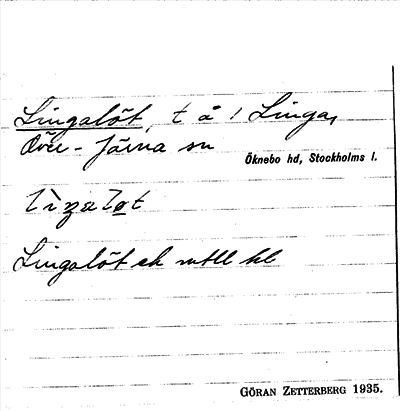 Lingalöt, t å 1 Linga,
Över-Järna sn
Öknebo hd, Stockholms l.
lìŋaløt
Lingalöt ek mtll hl
GÖRAN ZETTERBERG 1935.